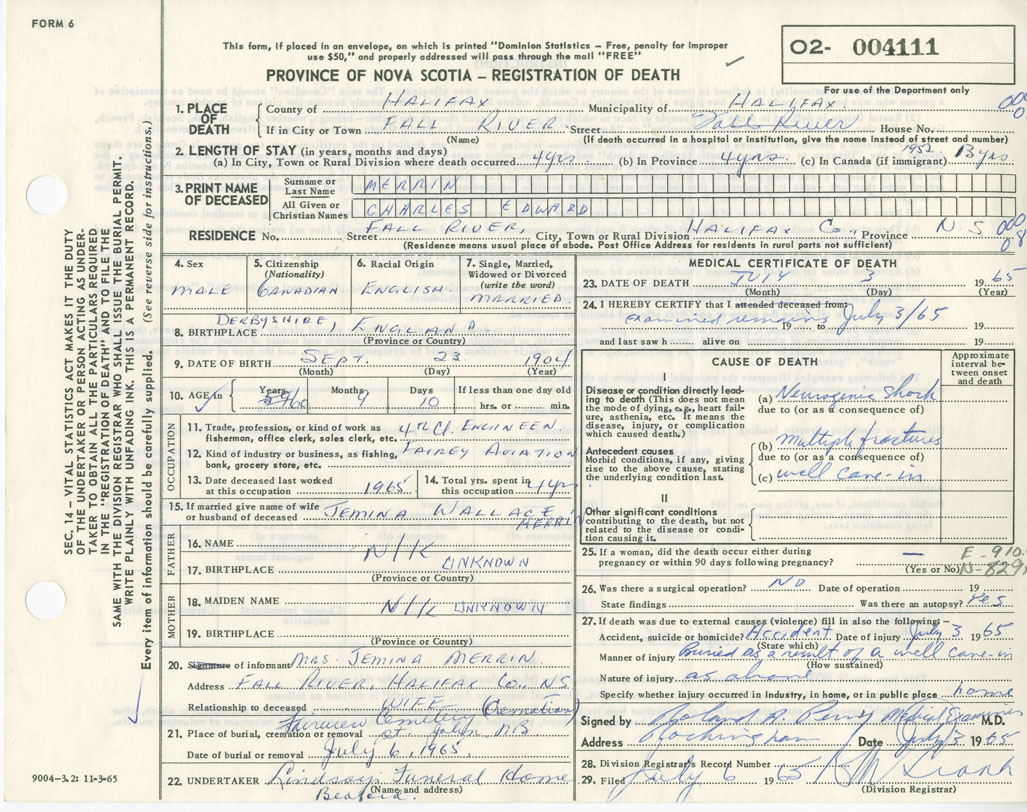 FORM 6
This form, if placed in an envelope, on which is printed "Dominion Statistics – Free, penalty for improper
use $50," and properly addressed will pass through the mail "FREE"
PROVINCE OF NOVA SCOTIA – REGISTRATION OF DEATH
02- 004111
For use of the Department only
1. PLACE OF DEATH
County of HALIFAX Municipality of HALIFAX
If in City or Town FALL RIVER Street Falls River House No.
(Name) (If death occurred in a hospital or institution, give the name instead of street and number)
2. LENGTH OF STAY (in years, months and days)
(a) In City, Town or Rural Division where death occurred 4 yrs (b) In Province 4 yrs. (c) In Canada (if immigrant) 1952. 13 yrs
3. PRINT NAME OF DECEASED
Surname or Last Name MERRIN
All Given or Christian Names CHARLES EDWARD
RESIDENCE No. Street FALL RIVER, City, Town or Rural Division HALIFAX Co., Province N S
(Residence means usual place of abode. Post Office Address for residents in rural parts not sufficient)
4. Sex MALE
5. Citizenship (Nationality) CANADIAN
6. Racial Origin ENGLISH.
7. Single, Married, Widowed or Divorced (write the word) MARRIED
8. BIRTHPLACE DERBYSHIRE, ENGLAND
(Province or Country)
9. DATE OF BIRTH SEPT. 23 1904
(Month) (Day) (Year)
10. AGE in Years 60 Months 9 Days 10 If less than one day old hrs. or min.
OCCUPATION
11. Trade, profession, or kind of work as fisherman, office clerk, sales clerk, etc. 4th Cl. ENGINEEN
12. Kind of industry or business, as fishing, bank, grocery store, etc. FAIREY AVIATION
13. Date deceased last worked at this occupation 1965
14. Total yrs. spent in this occupation 4 yrs
15. If married give name of wife or husband of deceased JEMINA WALLACE MERRIN
FATHER
16. NAME N/K
17. BIRTHPLACE UNKNOWN
(Province or Country)
MOTHER
18. MAIDEN NAME N/K UNKNOWN
19. BIRTHPLACE
(Province or Country)
20. Signature of informant MRS. JEMINA MERRIN.
Address FALL RIVER, HALIFAX Co., N.S
Relationship to deceased WIFE (Cremation)
21. Place of burial, cremation or removal Fairview Cemetery St. John NB
Date of burial or removal July 6, 1965.
22. UNDERTAKER Lindsay Funeral Home
(Name and address)
Bedford.
MEDICAL CERTIFICATE OF DEATH
23. DATE OF DEATH JULY 3 1965
(Month) (Day) (Year)
24. I HEREBY CERTIFY that I attended deceased from
examined remains 19 to July 3/65 19
and last saw h alive on 19
CAUSE OF DEATH
Approximate interval between onset and death
I
Disease or condition directly leading to death (This does not mean the mode of dying, e.g., heart failure, asthenia, etc. It means the disease, injury, or complication which caused death.)
(a) Neurogenic Shock
due to (or as a consequence of)
Antecedent causes
Morbid conditions, if any, giving rise to the above cause, stating the underlying condition last.
(b) Multiple fractures
due to (or as a consequence of)
(c) well cave-in
II
Other significant conditions
contributing to the death, but not related to the disease or condition causing it.
25. If a woman, did the death occur either during pregnancy or within 90 days following pregnancy? —
(Yes or No)
E-910.
N-829
26. Was there a surgical operation? NO Date of operation 19
State findings Was there an autopsy? yes
27. If death was due to external causes (violence) fill in also the following: –
Accident, suicide or homicide? Accident Date of injury July 3 1965
(State which)
Manner of injury Buried as a result of a well cave-in
(How sustained)
Nature of injury as above
Specify whether injury occurred in industry, in home, or in public place home
Signed by Roland A. Perry Medical Examiner M.D.
Address Rockingham Date July 3 1965
28. Division Registrar's Record Number
29. Filed July 6 1965
(Division Registrar)
SEC. 14 – VITAL STATISTICS ACT MAKES IT THE DUTY
OF THE UNDERTAKER OR PERSON ACTING AS UNDER-
TAKER TO OBTAIN ALL THE PARTICULARS REQUIRED
IN THE "REGISTRATION OF DEATH" AND TO FILE THE
SAME WITH THE DIVISION REGISTRAR WHO SHALL ISSUE THE BURIAL PERMIT.
WRITE PLAINLY WITH UNFADING INK. THIS IS A PERMANENT RECORD.
Every item of information should be carefully supplied. (See reverse side for instructions.)
9004-3.2: 11-3-65